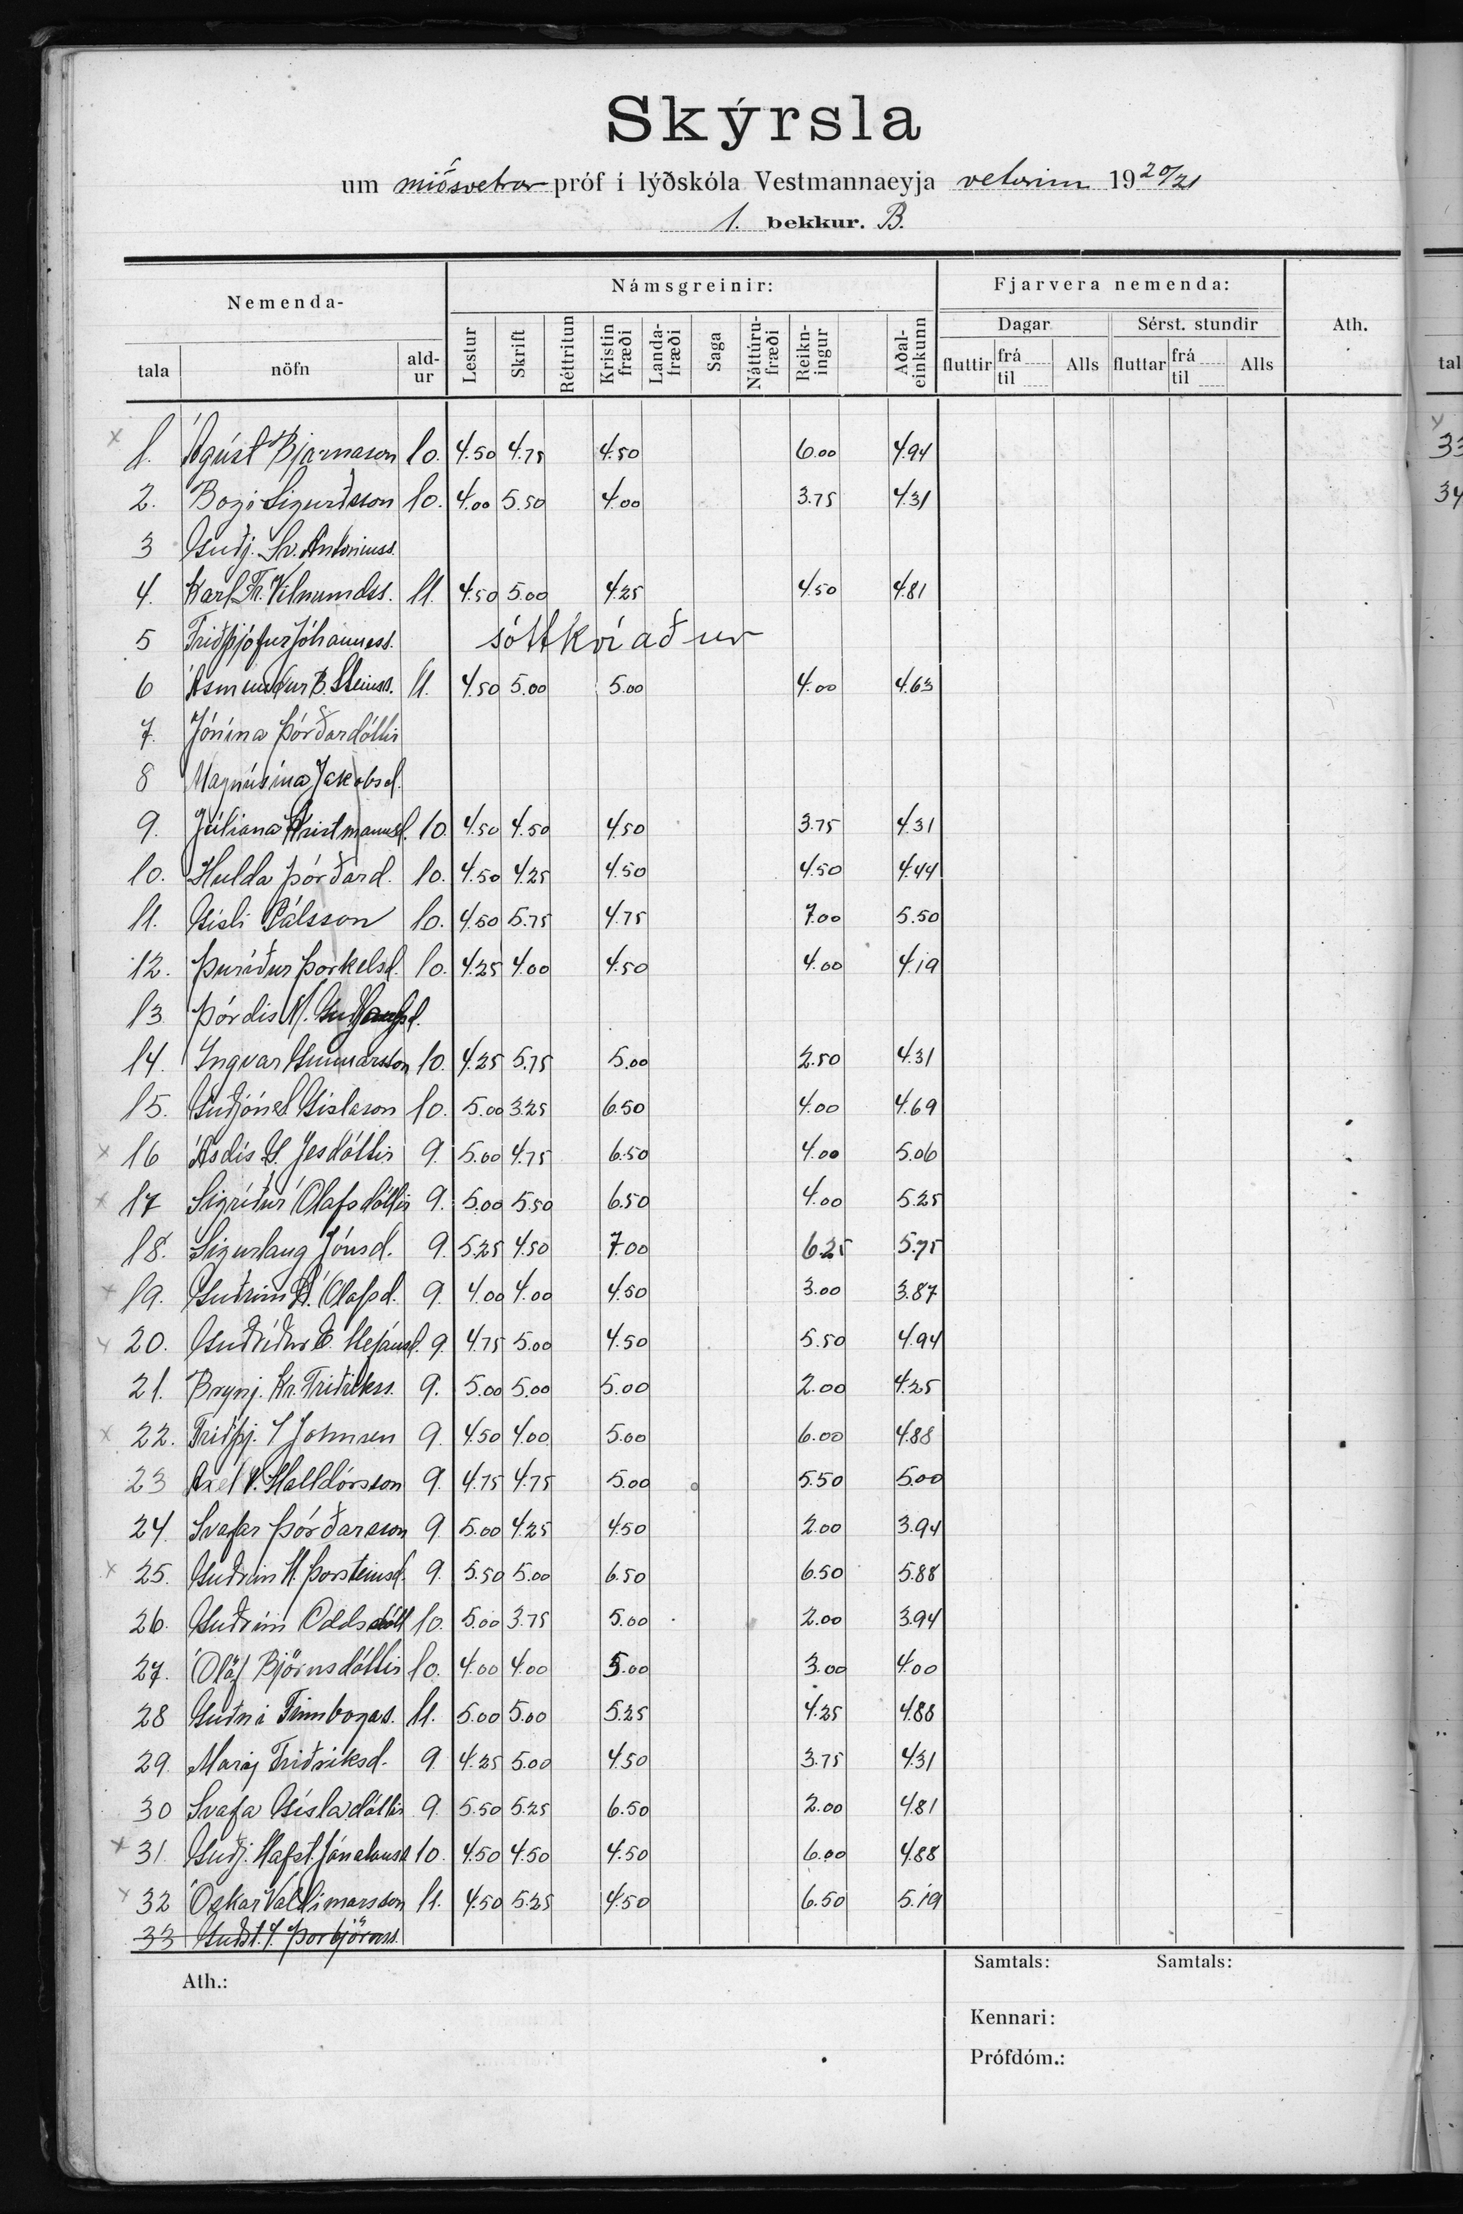 Skýrsla
um miðsvetrar próf í lýðskóla Vestmannaeyja veturinn 1920/21
1. bekkur. B.
Nemenda-
Námsgreinir:
Fjarvera nemenda:
Dagar
Sérst. stundir
Ath.
tala nöfn ald-ur Lestur Skrift Réttritun Kristin fræði Landa-fræði Saga Náttúru-fræði Reikn-ingur Aðal-einkunn fluttir frá til Alls fluttar frá til Alls
x 1. Ágúst Bjarnason 10. 4.50 4.75 4.50 6.00 4.94
2. Bogi Sigurðsson 10. 4.00 5.50 4.00 3.75 4.31
3 Guðj. Sv. Antoniuss.
4. Karl Fr. Vilmundss. 11. 4.50 5.00 4.25 4.50 4.81
5 Friðþjófur Jóhanness. sóttkvíaður
6 Ásmundur B. Steinss. 11. 4.50 5.00 5.00 4.00 4.63
7. Jónína Þórðardóttir
8 Magnúsína Jakobsd.
9. Júliana Kristmannsd. 10. 4.50 4.50 4.50 3.75 4.31
10. Hulda Þórðard. 10. 4.50 4.25 4.50 4.50 4.44
11. Gísli Pálsson 10. 4.50 5.75 4.75 7.00 5.50
12. Þuríður Þorkelsd. 10. 4.25 4.00 4.50 4.00 4.19
13 Þórdis
14. Ingvar Gunnarsson 10. 4.25 5.75 5.00 2.50 4.31
15. Guðjón Gíslason 10. 5.00 3.25 6.50 4.00 4.69
x 16 Ásdís G. Jesdóttir 9. 5.00 4.75 6.50 4.00 5.06
x 17 Sigríður Ólafsdóttir 9. 5.00 5.50 6.50 4.00 5.25
18. Sigurlaug Jónsd. 9. 5.25 4.50 7.00 6.25 5.75
x 19. Guðrún Ólafsd. 9. 4.00 4.00 4.50 3.00 3.87
x 20. Guðríður E. Stefánsd. 9. 4.75 5.00 4.50 5.50 4.94
21. Brynj. Kr. Friðrikss. 9. 5.00 5.00 5.00 2.00 4.25
x 22. Friðþj. Johnsen 9. 4.50 4.00 5.00 6.00 4.88
23 Axel V. Halldórsson 9. 4.75 4.75 5.00 5.50 5.00
24. Svafar Þórðarson 9. 5.00 4.25 4.50 2.00 3.94
x 25. Guðrún H. Þorsteinsd. 9. 5.50 5.00 6.50 6.50 5.88
26. Guðrún Oddsdótt 10. 5.00 3.75 5.00 2.00 3.94
27. Ólöf Björnsdóttir 10. 4.00 4.00 5.00 3.00 4.00
28 Guðni Finnbogas. 11. 5.00 5.00 5.25 4.25 4.88
29. Friðriksd. 9. 4.25 5.00 4.50 3.75 4.31
30 Svafa Gísladóttir 9. 5.50 5.25 6.50 2.00 4.81
x 31. Guðj. Hafst. 10. 4.50 4.50 4.50 6.00 4.88
x 32 Óskar Valdimarsson 11. 4.50 5.25 4.50 6.50 5.19
33 Þorbjörnss.
Ath.:
Samtals: Samtals:
Kennari:
Prófdóm.:
tal
33
34